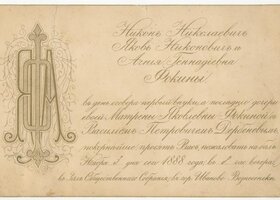 Никонъ Николаевичъ
Яковъ Никоновичъ и
Агнія Геннадіевна
Фокины
въ день сговора первой внучки, а последней дочери
своей Матрены Яковлевны Фокиной съ
Василіемъ Петровичемъ
покорнѣйше просятъ Васъ, пожаловать на балъ
Ноября дня сего 1888 года, въ час. вечера,
въ Залъ Общественнаго Собранія, въ гор. Иваново-Вознесенскѣ.